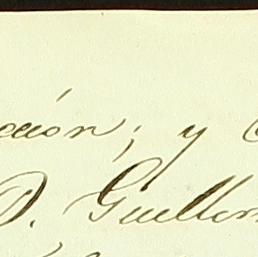 ción; y
D. Guiller